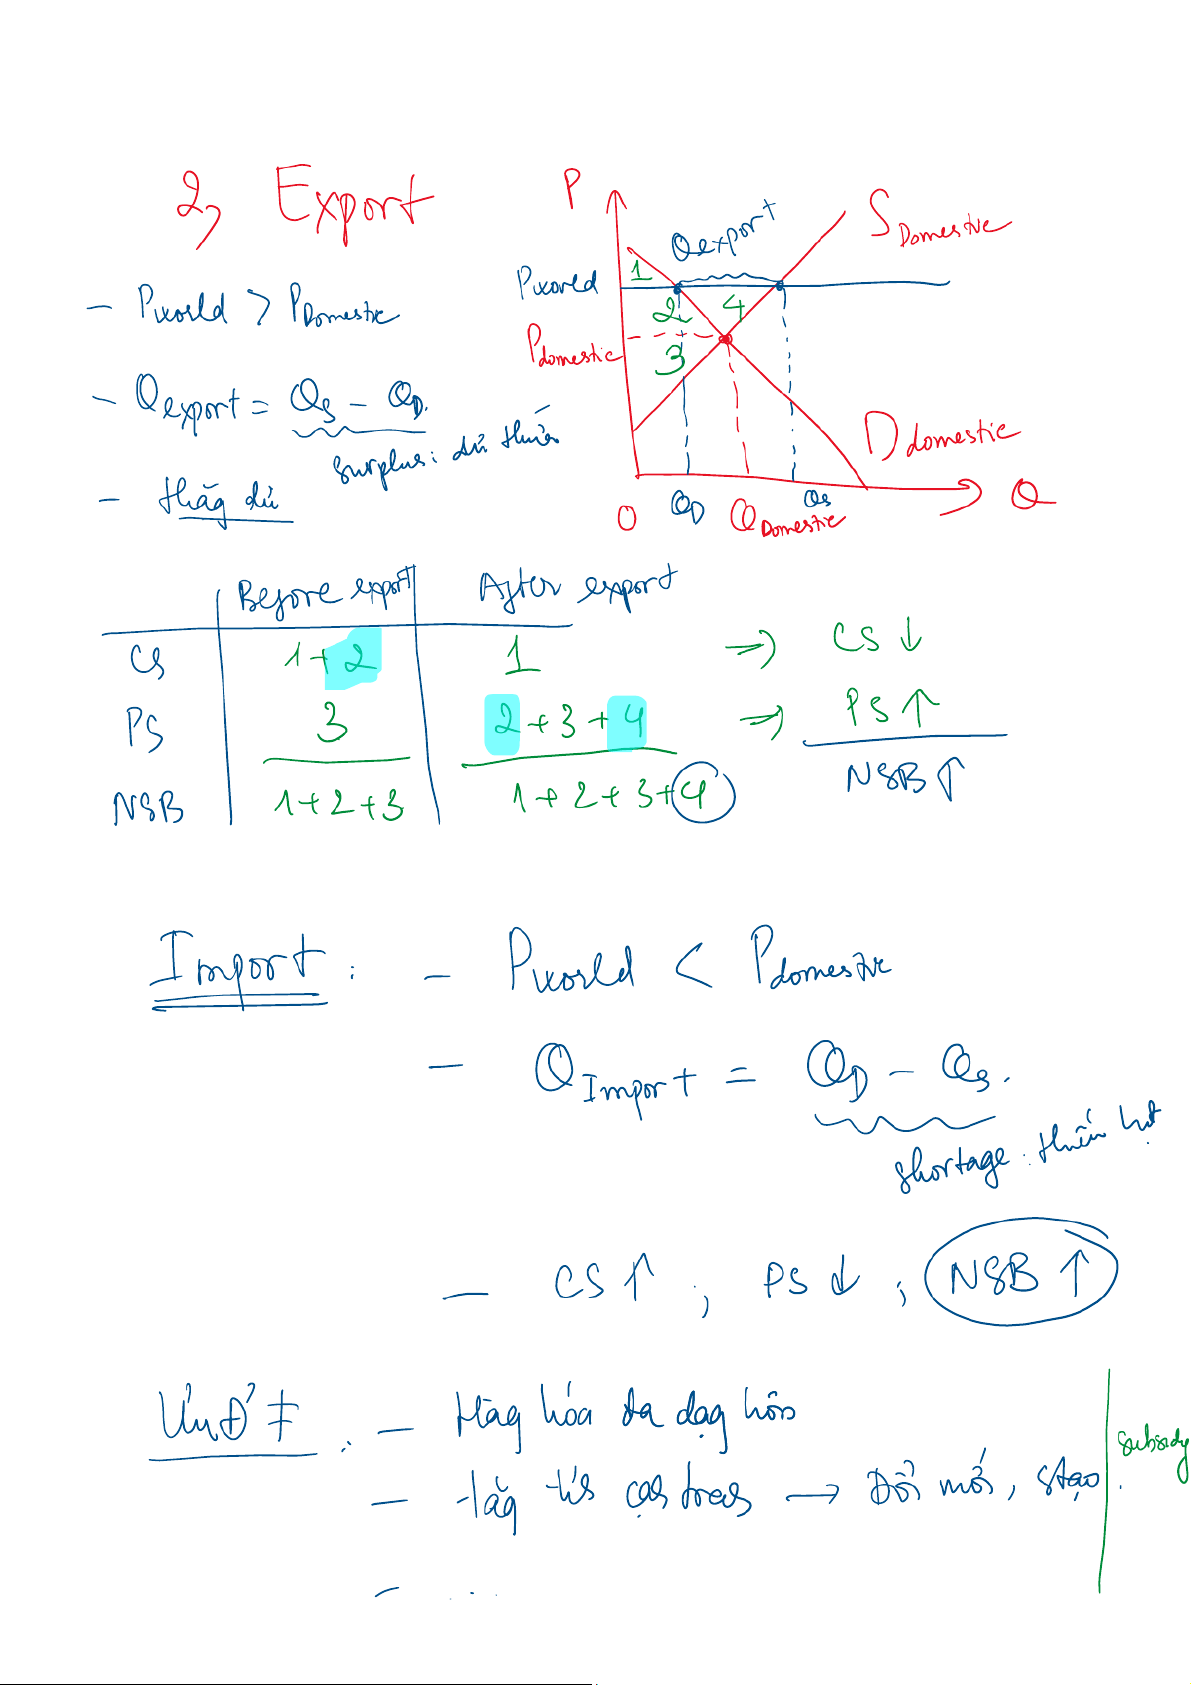 2, Export
- Pworld > PDomestic
- Qexport = QS - QD.
surplus: dư thừa
- thặg dư
P
Qexport
SDomestic
Pworld
1
2
4
Pdomestic
3
Ddomestic
O
QD
QDomestic
QS
Q
Before export
After export
CS
1+2
1
=> CS ↓
PS
3
2+3+4
=> PS ↑
NSB
1+2+3
1+2+3+4
NSB ↑
Import: - Pworld < Pdomestic
- QImport = QD - QS.
shortage: thiếu hụt
- CS ↑ ; PS ↓ ; NSB ↑
: - Hàg hóa đa dạg hơn
- tăg tính cạnh tranh → Đổi mới, stạo.
subsidy
- ...